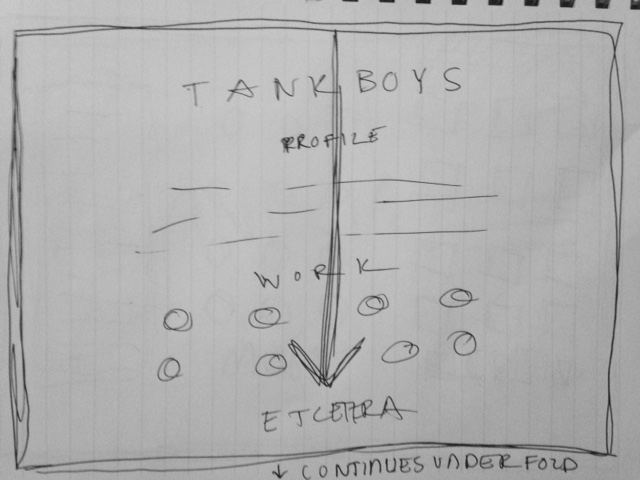 TANK BOYS
PROFILE
WORK
ETCETERA
↓ CONTINUES UNDER FOLD